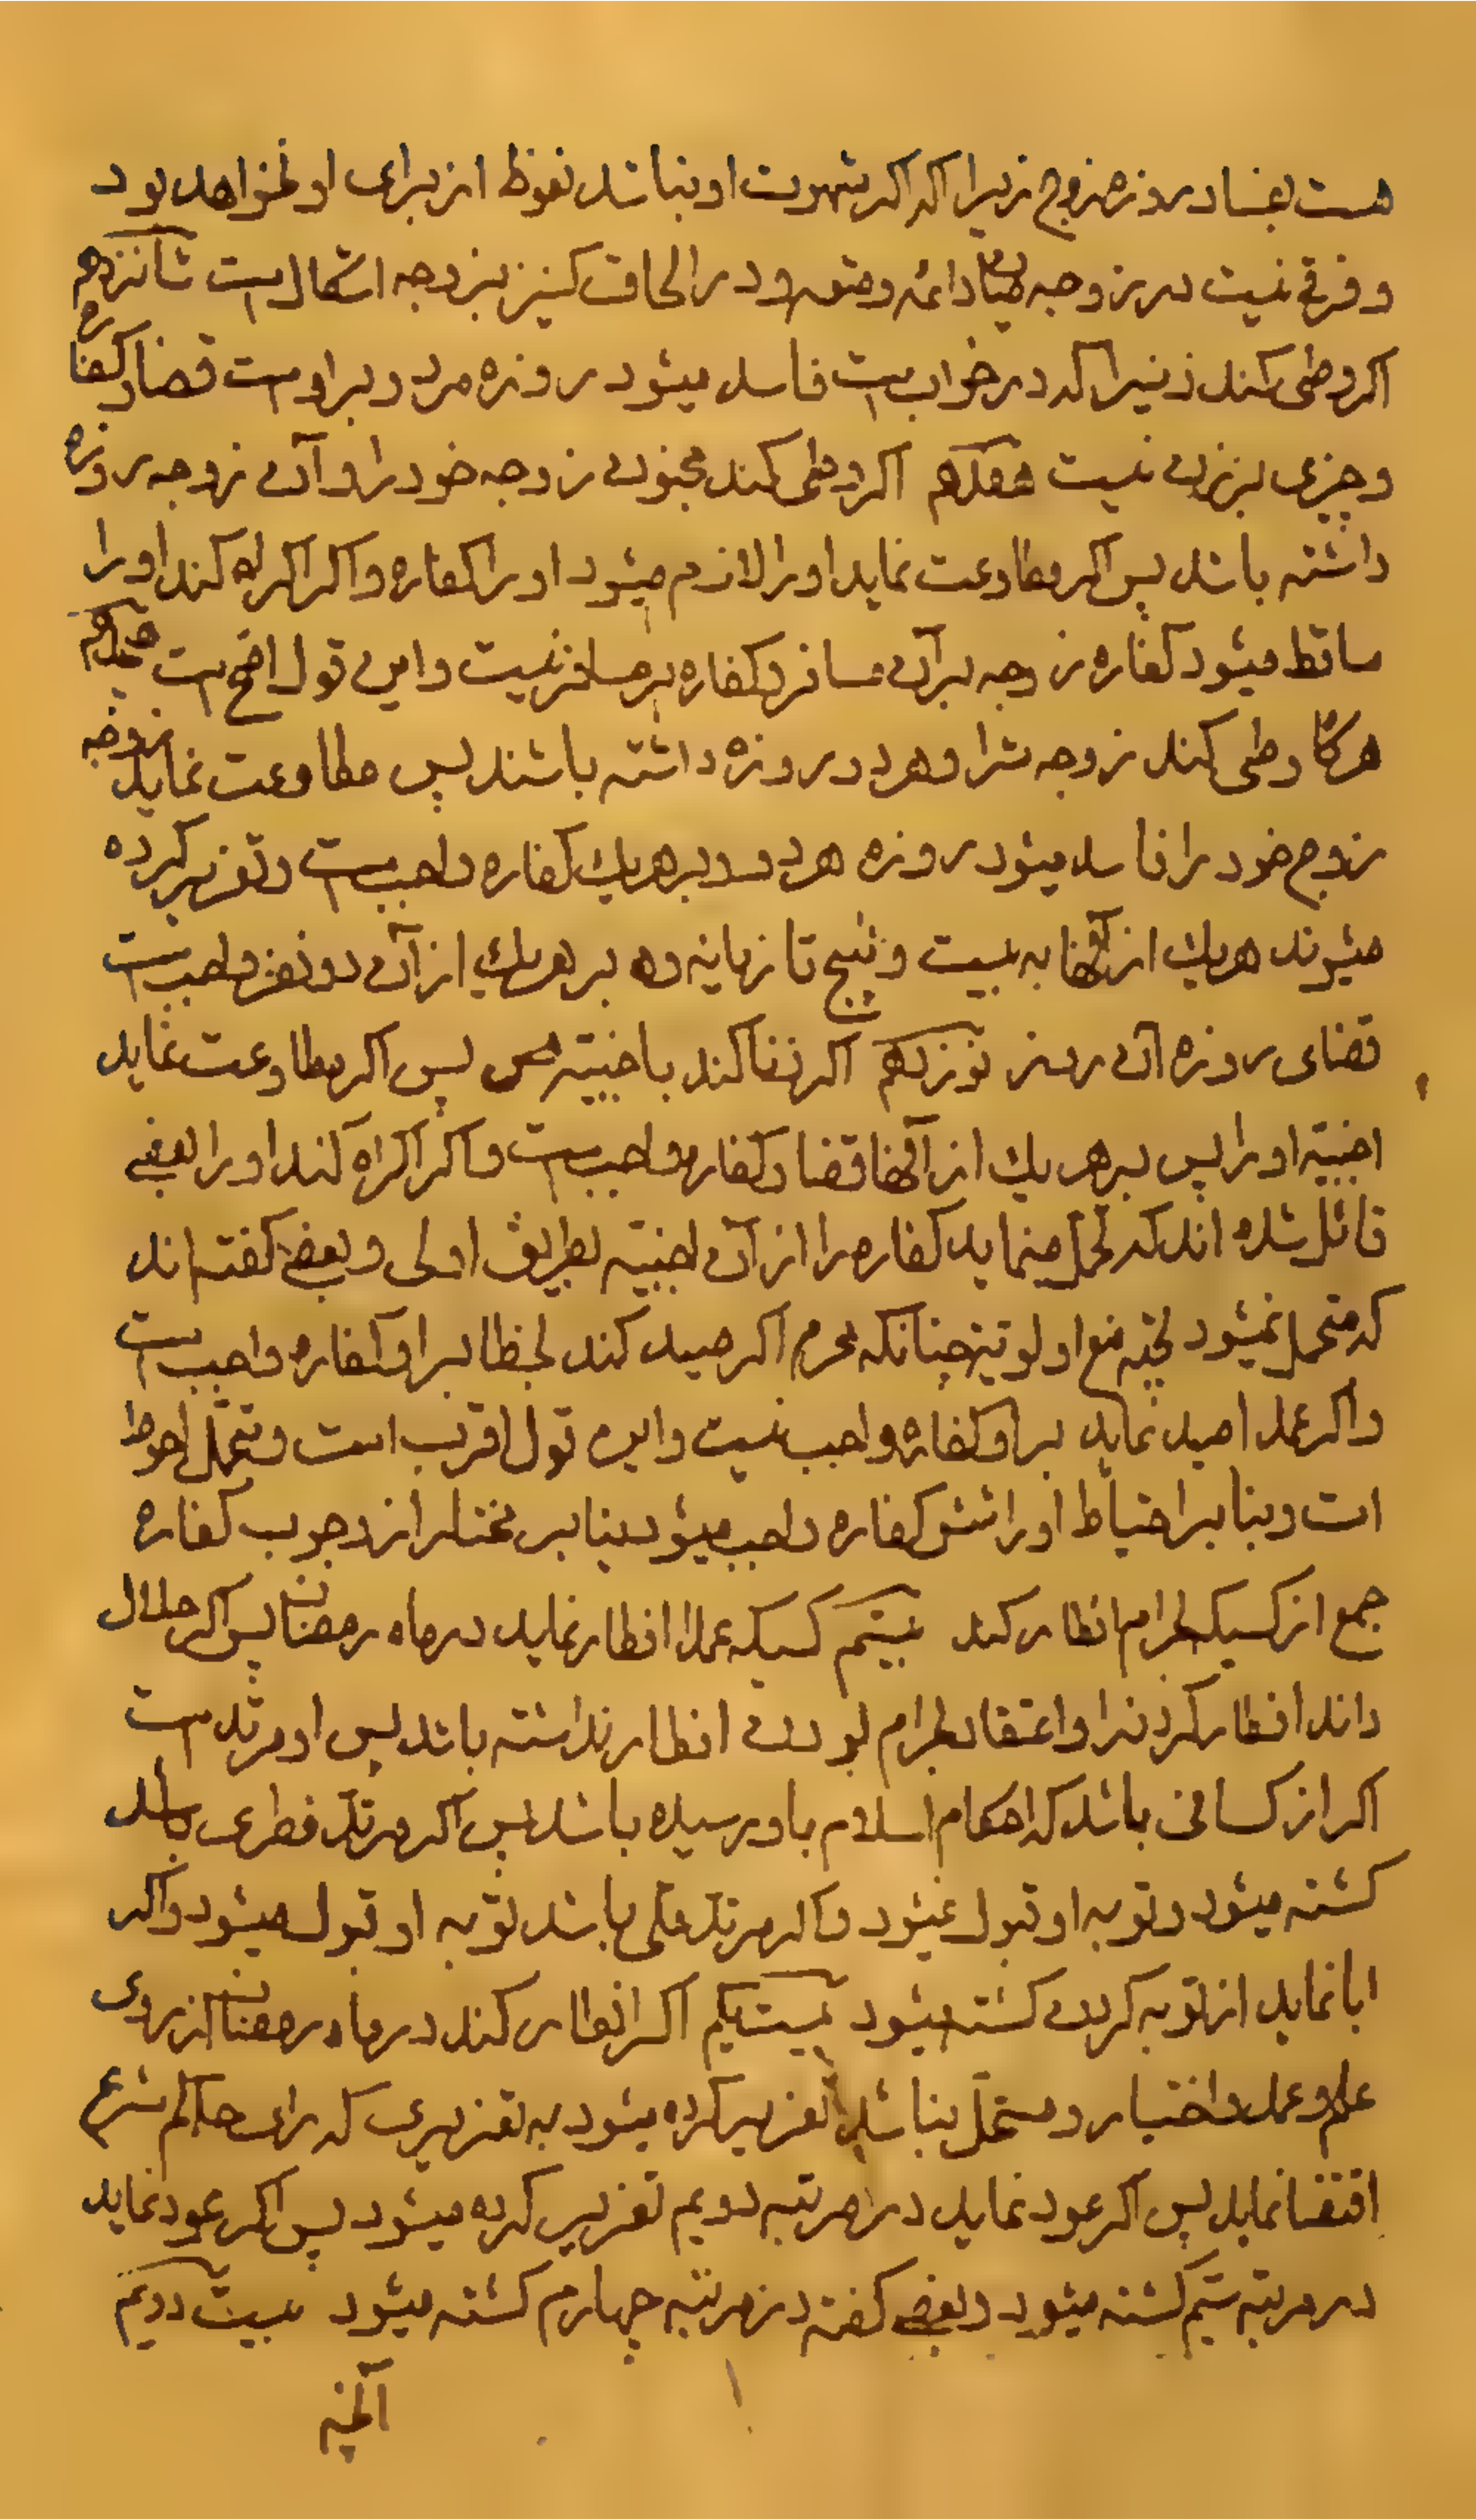 هست بفساد روزه زوج زیرا که اگر شهوت او نباشد نعوظ از برای او نخواهد بود
و فرقی نیست در زوجه میان دائمه و متعه و در الحاق کنیز بزوجه اشکال است شانزدهم
اگر وطی کند زنیرا که در خواب است فاسد میشود روزه مرد و بر اوست قضا و کفاره
و چیزی بر زن نیست هفدهم اگر وطی کند مجنون زوجه خود را و آن زوجه روزه
داشته باشد پس اگر مطاوعت نماید او را لازم میشود او را کفاره و اگر اکراه کند او را
ساقط میشود کفاره زوجه بر آن مسافر و کفاره بر مسافر نیست و این قول اصح است هجدهم
هرگاه وطی کند زوجه شرا و هر دو روزه داشته باشند پس مطاوعت نماید زوجه
زوج خود را فاسد میشود روزه هر دو و بر هر یک کفاره واجب است و تعزیر کرده
میشوند هر یک از آنها به بیست و پنج تازیانه و بر هر یک از آن دو نفر واجب است
قضای روزه آن روز نوزدهم اگر زنا کند باجنبیه پس اگر مطاوعت نماید
اجنبیه او را پس بر هر یک از آنها قضا و کفاره واجب است و اگر اکراه کند او را بعضی
قائل شده اند که تحمل مینماید کفاره را از آن اجنبیه بطریق اولی و بعضی گفته اند
که متحمل نمیشود بجهة منع اولویة چنانکه محرم اگر صید کند بخطا بر او کفاره واجب است
و اگر عمدا صید نماید بر او کفاره واجب نیست و این قول اقرب است و تحمل احوط
است و بنا بر احتیاط او را شش کفاره واجب میشود بنا بر مختار از وجوب کفاره
جمع از کسیکه بحرام افطار کند بیستم کسیکه عمدا افطار نماید در ماه رمضان پس اگر حلال
داند افطار کردنرا و اعتقاد بحرام بودن افطار نداشته باشد پس او مرتد است
اگر از کسانی باشد که احکام اسلام باو رسیده باشد پس اگر مرتد فطری باشد
کشته میشود و توبه او قبول نمیشود و اگر مرتد ملی باشد توبه او قبول میشود و اگر
ابا نماید از توبه کردن کشته میشود بیست یکم اگر افطار کند در ماه رمضان از روی
علم و عمد و اختیار و مستحل نباشد تعزیر کرده میشود به تعزیری که رای حاکم شرع
اقتضا نماید پس اگر عود نماید در مرتبه دویم تعزیر کرده میشود پس اگر عود نماید
در مرتبه سیم کشته میشود و بعضی گفته در مرتبه چهارم کشته میشود بیست دویم
آنچه